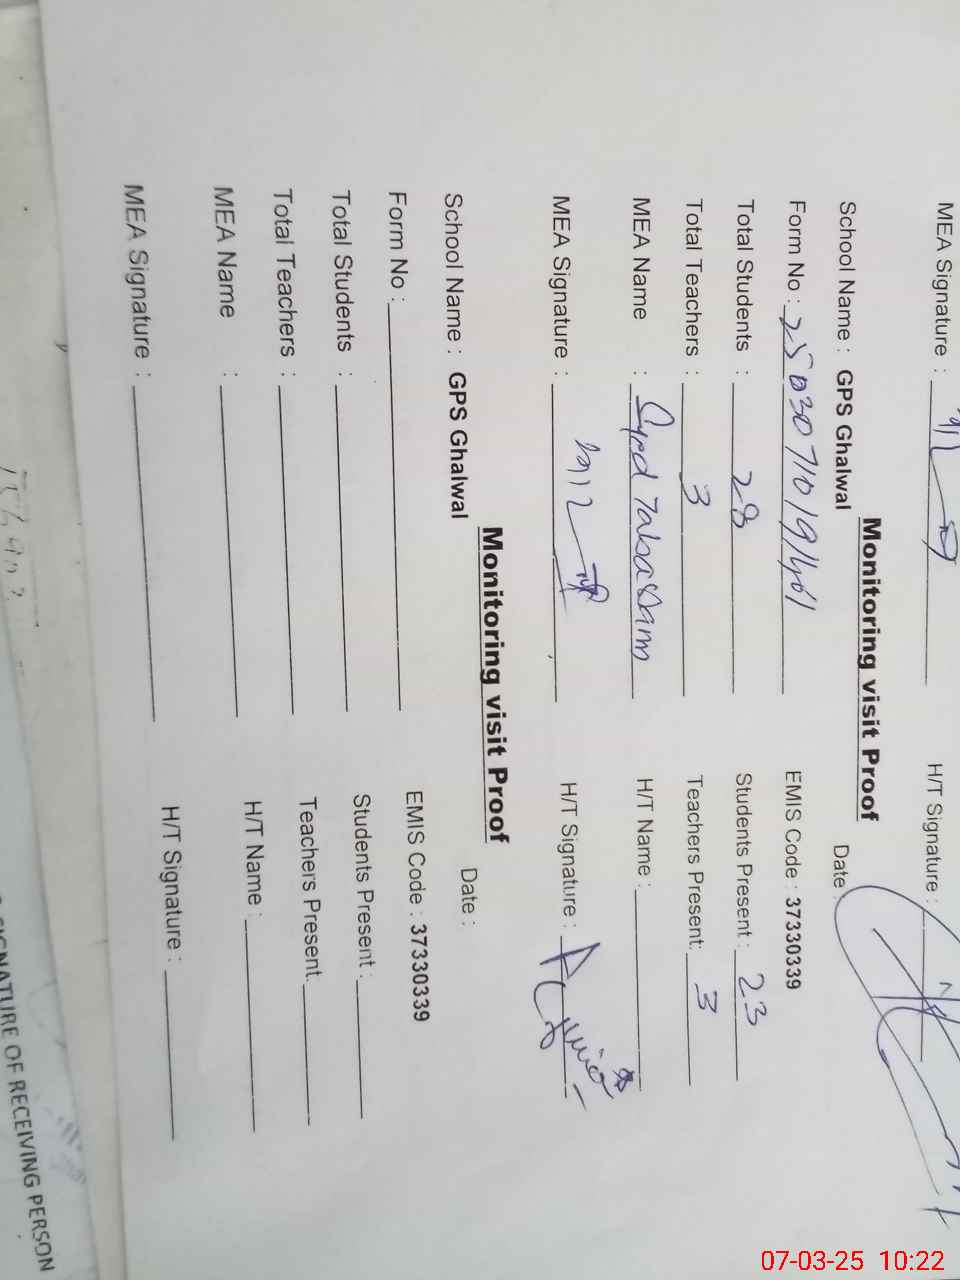 MEA Signature : H/T Signature :
Monitoring visit Proof
School Name : GPS Ghalwal Date :
Form No : EMIS Code : 37330339
Total Students : 28 Students Present : 23
Total Teachers : 3 Teachers Present: 3
MEA Name : Syed Tabassam H/T Name :
MEA Signature : H/T Signature :
Monitoring visit Proof
School Name : GPS Ghalwal Date :
Form No : EMIS Code : 37330339
Total Students : Students Present :
Total Teachers : Teachers Present.
MEA Name : H/T Name :
MEA Signature : H/T Signature :
SIGNATURE OF RECEIVING PERSON
07-03-25 10:22